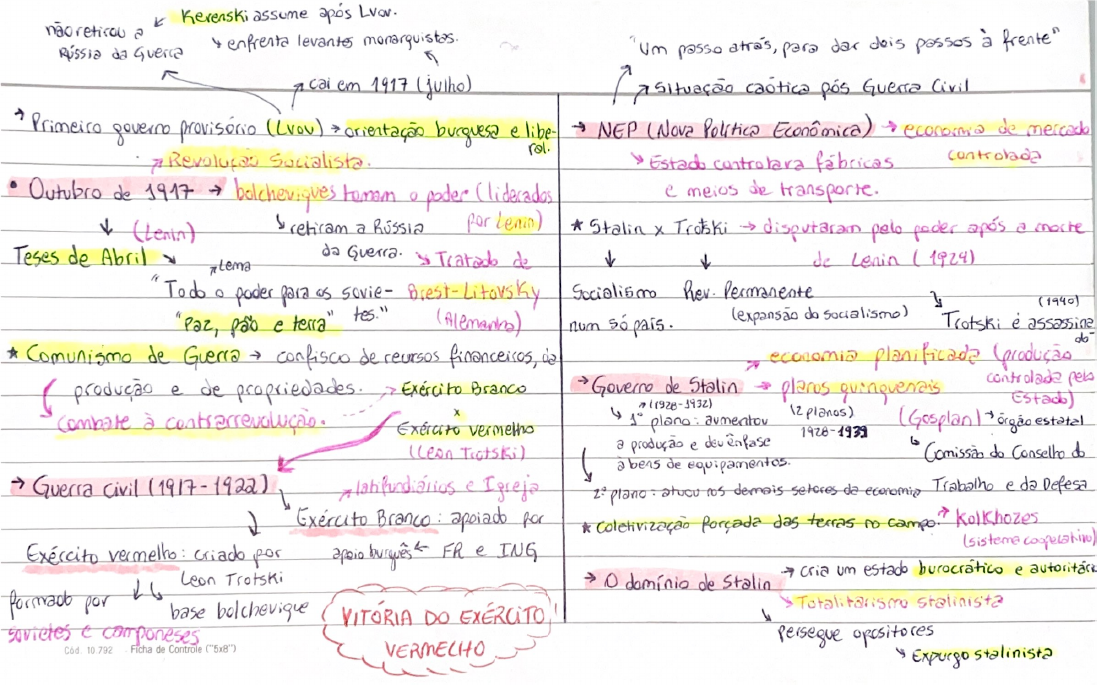 Kerenski assume após Lvov.
não retirou a
Rússia da Guerra
↳ enfrenta levantes monarquistas.
↗ cai em 1917 (julho)
→ Primeiro governo provisório (Lvov) → orientação burguesa e libe-
ral.
↗ Revolução Socialista.
• Outubro de 1917 → bolcheviques tomam o poder (liderados
por Lenin)
↓ (Lenin)
↳ retiram a Rússia
da Guerra.
↘ Tratado de
Brest-Litovsky
(Alemanha)
Teses de Abril ↘
↗ Lema
"Todo o poder para os sovie-
tes."
"Paz, pão e terra"
★ Comunismo de Guerra → confisco de recursos financeiros, da
produção e de propriedades.
Combate à contrarrevolução.
Exército Branco
x
Exército vermelho
(Leon Trotski)
→ Guerra civil (1917-1922)
↗ latifundiários e Igreja
Exército Branco: apoiado por
apoio burguês ← FR e ING
Exército vermelho: criado por
Leon Trotski
formado por
sovietes e camponeses
↳ base bolchevique
VITÓRIA DO EXÉRCITO
VERMELHO
Cód. 10.792 Ficha de Controle ("5x8")
"Um passo atrás, para dar dois passos à frente"
↗ Situação caótica pós Guerra Civil
→ NEP (Nova Política Econômica) → economia de mercado
controlada
↘ Estado controlara fábricas
e meios de transporte.
★ Stalin x Trotski → disputaram pelo poder após a morte
de Lenin (1924)
Socialismo
num só país.
Rev. Permanente
(expansão do socialismo)
(1940)
Trotski é assassina
do
→ Governo de Stalin
economia planificada (produção
controlada pelo
Estado)
→ planos quinquenais
(2 planos)
1928-1939
(1928-1932)
↳ 1º plano: aumentou
a produção e deu ênfase
à bens de equipamentos.
(Gosplan) → órgão estatal
↳ Comissão do Conselho do
Trabalho e da Defesa
2º plano: atuou nos demais setores da economia
★ Coletivização forçada das terras no campo.
Kolkhozes
(sistema cooperativo)
→ O domínio de Stalin
→ cria um estado burocrático e autoritári
↘ Totalitarismo stalinista
Persegue opositores
↘ Expurgo stalinista